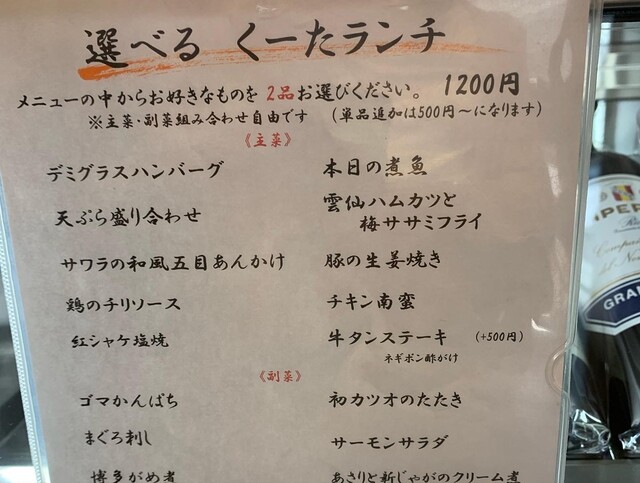 選べる くーたランチ
メニューの中からお好きなものを 2品お選びください。 1200円
※主菜・副菜組み合わせ自由です (単品追加は500円~になります)
《主菜》
デミグラスハンバーグ
天ぷら盛り合わせ
サワラの和風五目あんかけ
鶏のチリソース
紅シャケ塩焼
本日の煮魚
雲仙ハムカツと
梅ササミフライ
豚の生姜焼き
チキン南蛮
牛タンステーキ (+500円)
ネギポン酢がけ
《副菜》
ゴマかんぱち
まぐろ刺し
博多がめ煮
初カツオのたたき
サーモンサラダ
あさりと新じゃがのクリーム煮
GRAN